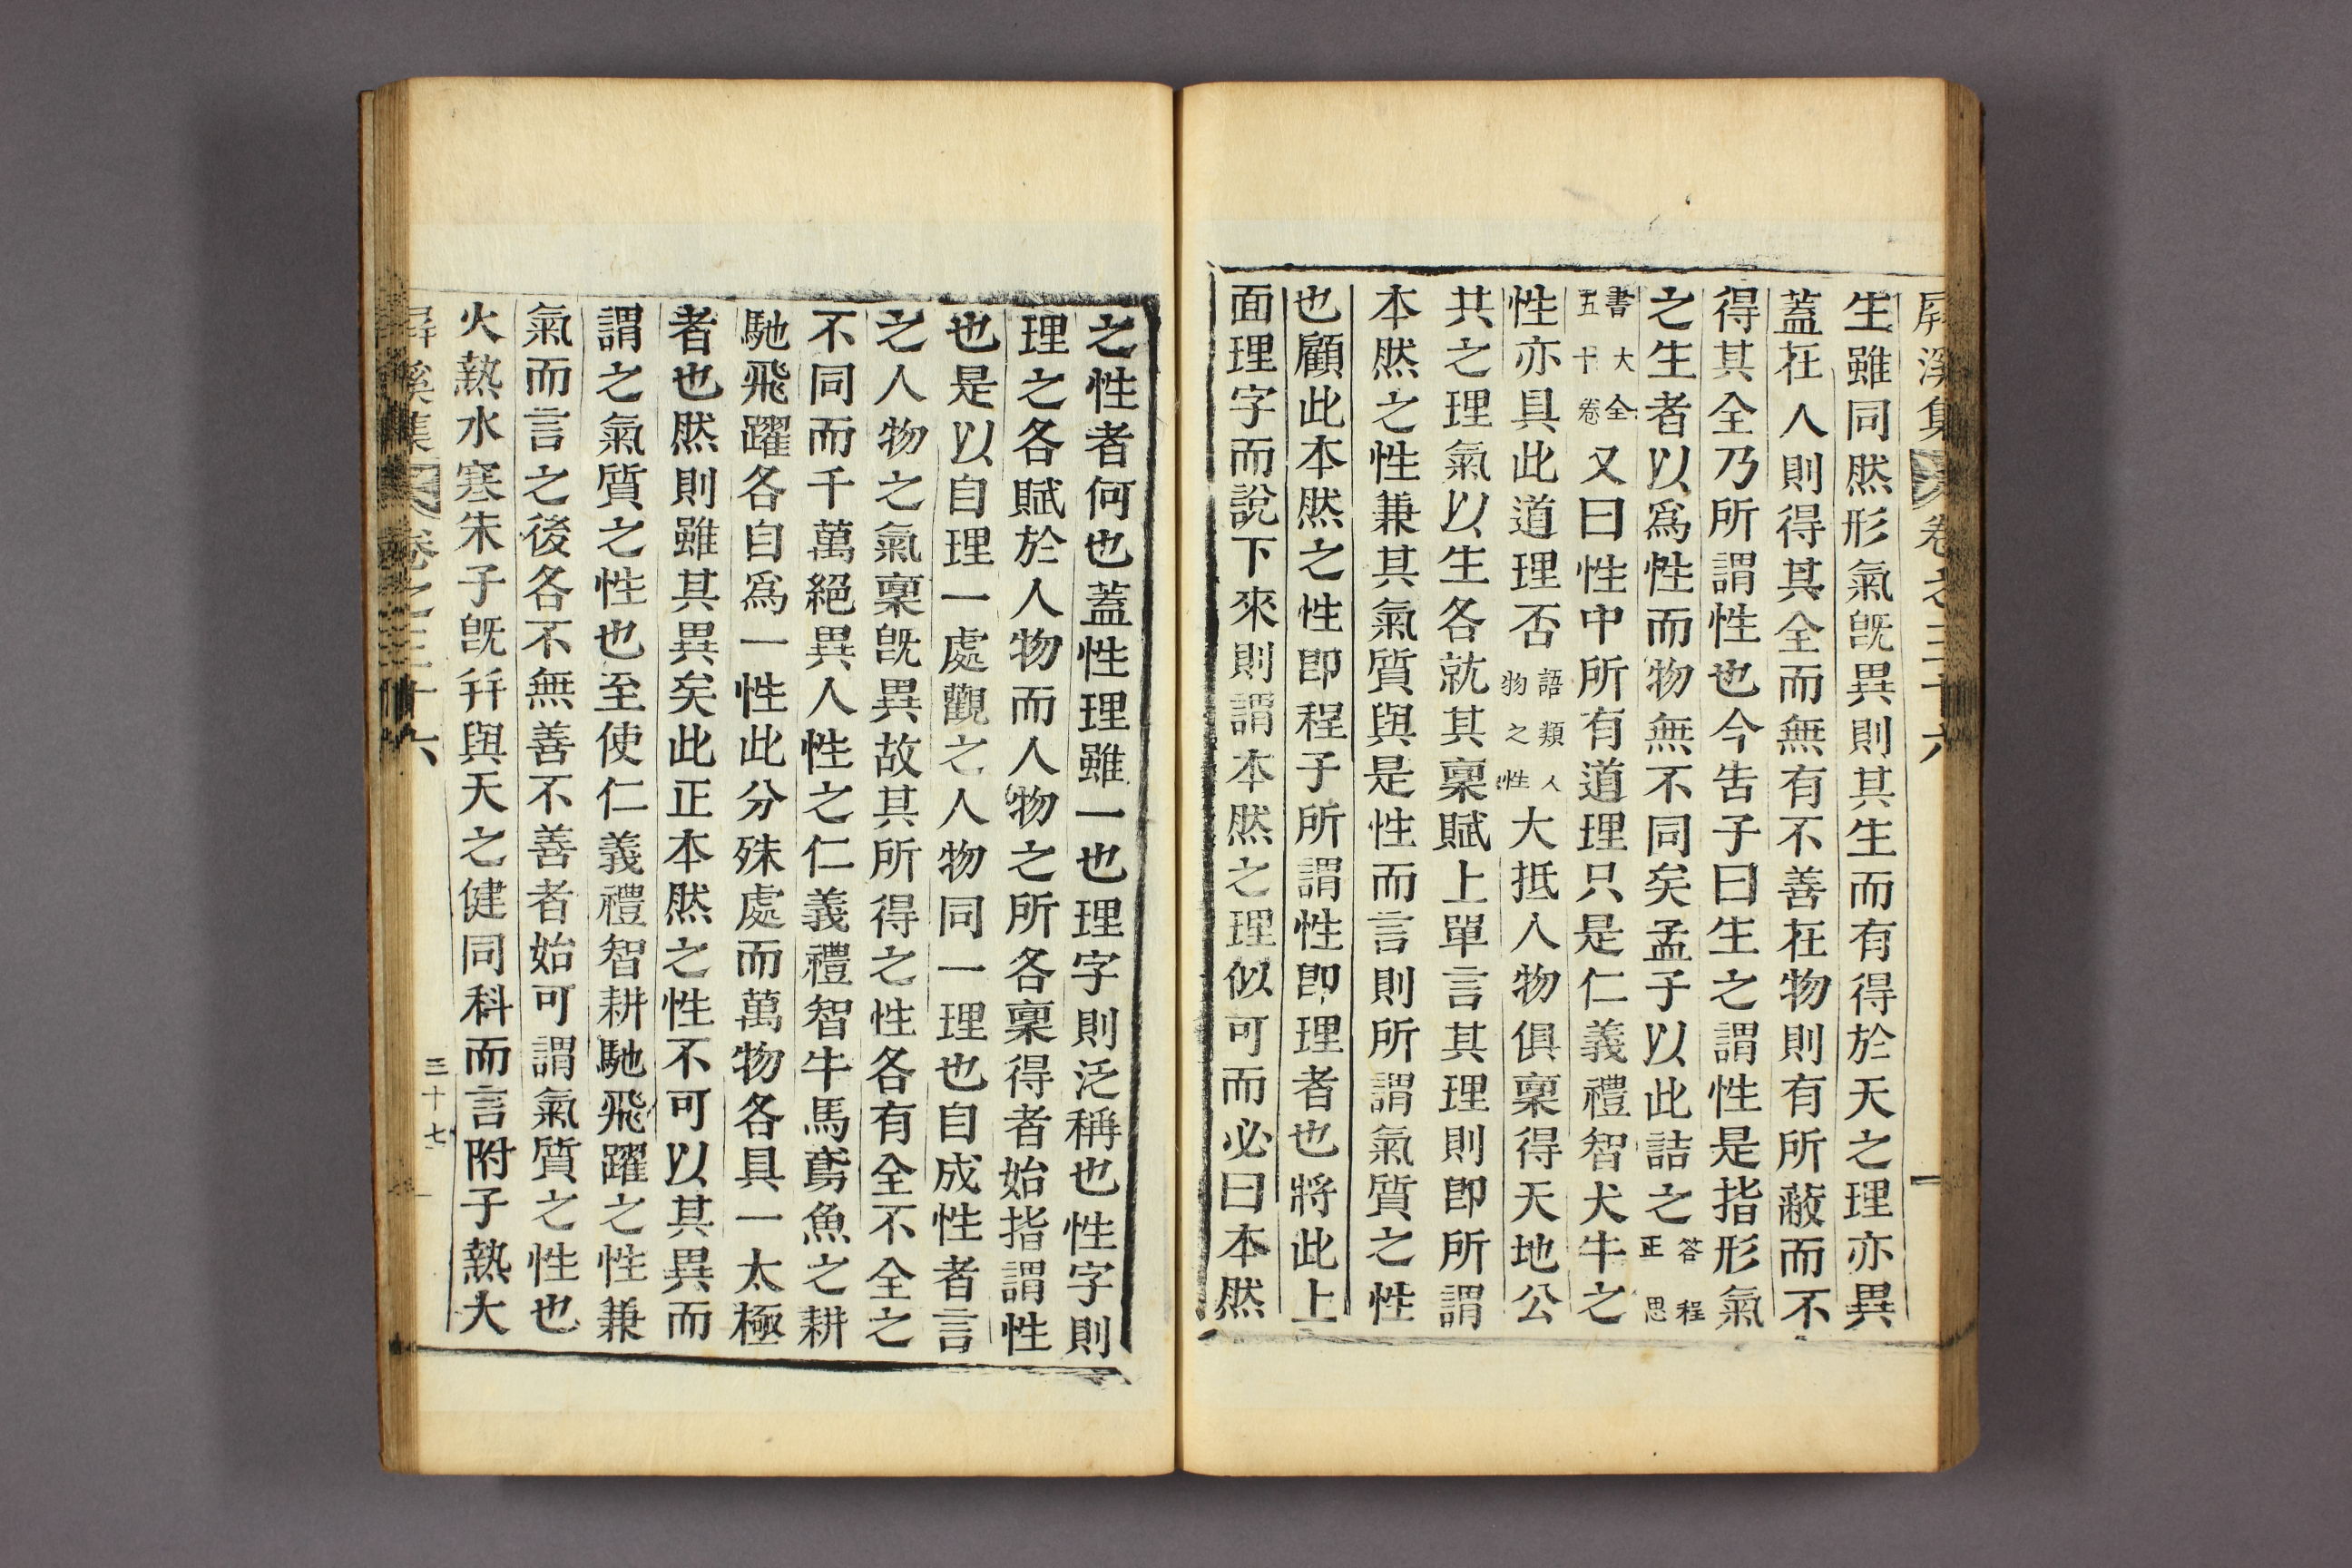 屛溪集 卷之三十六
生雖同然形氣旣異則其生而有得於天之理亦異
蓋在人則得其全而無有不善在物則有所蔽而不
得其全乃所謂性也今告子曰生之謂性是指形氣
之生者以爲性而物無不同矣孟子以此詰之答程正思
書大全五十卷又曰性中所有道理只是仁義禮智犬牛之
性亦具此道理否語類人物之性大抵人物俱稟得天地公
共之理氣以生各就其稟賦上單言其理則卽所謂
本然之性兼其氣質與是性而言則所謂氣質之性
也顧此本然之性卽程子所謂性卽理者也將此上
面理字而說下來則謂本然之理似可而必曰本然
之性者何也蓋性理雖一也理字則泛稱也性字則
理之各賦於人物而人物之所各稟得者始指謂性
也是以自理一處觀之人物同一理也自成性者言
之人物之氣稟旣異故其所得之性各有全不全之
不同而千萬絕異人性之仁義禮智牛馬鳶魚之耕
馳飛躍各自爲一性此分殊處而萬物各具一太極
者也然則雖其異矣此正本然之性不可以其異而
謂之氣質之性也至使仁義禮智耕馳飛躍之性兼
氣而言之後各不無善不善者始可謂氣質之性也
火熱水寒朱子旣幷與天之健同科而言附子熱大
屛溪集 卷之三十六 三十七